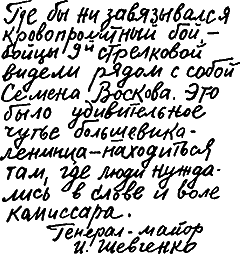 Где бы ни завязывался
кровопролитный бой –
бойцы 9й стрелковой
видели рядом с собой
Семена Воскова. Это
было удивительное
чутье большевика-
ленинца – находиться
там, где люди нужда-
лись в слове и воле
комиссара.
Генерал-майор
И. Шевченко